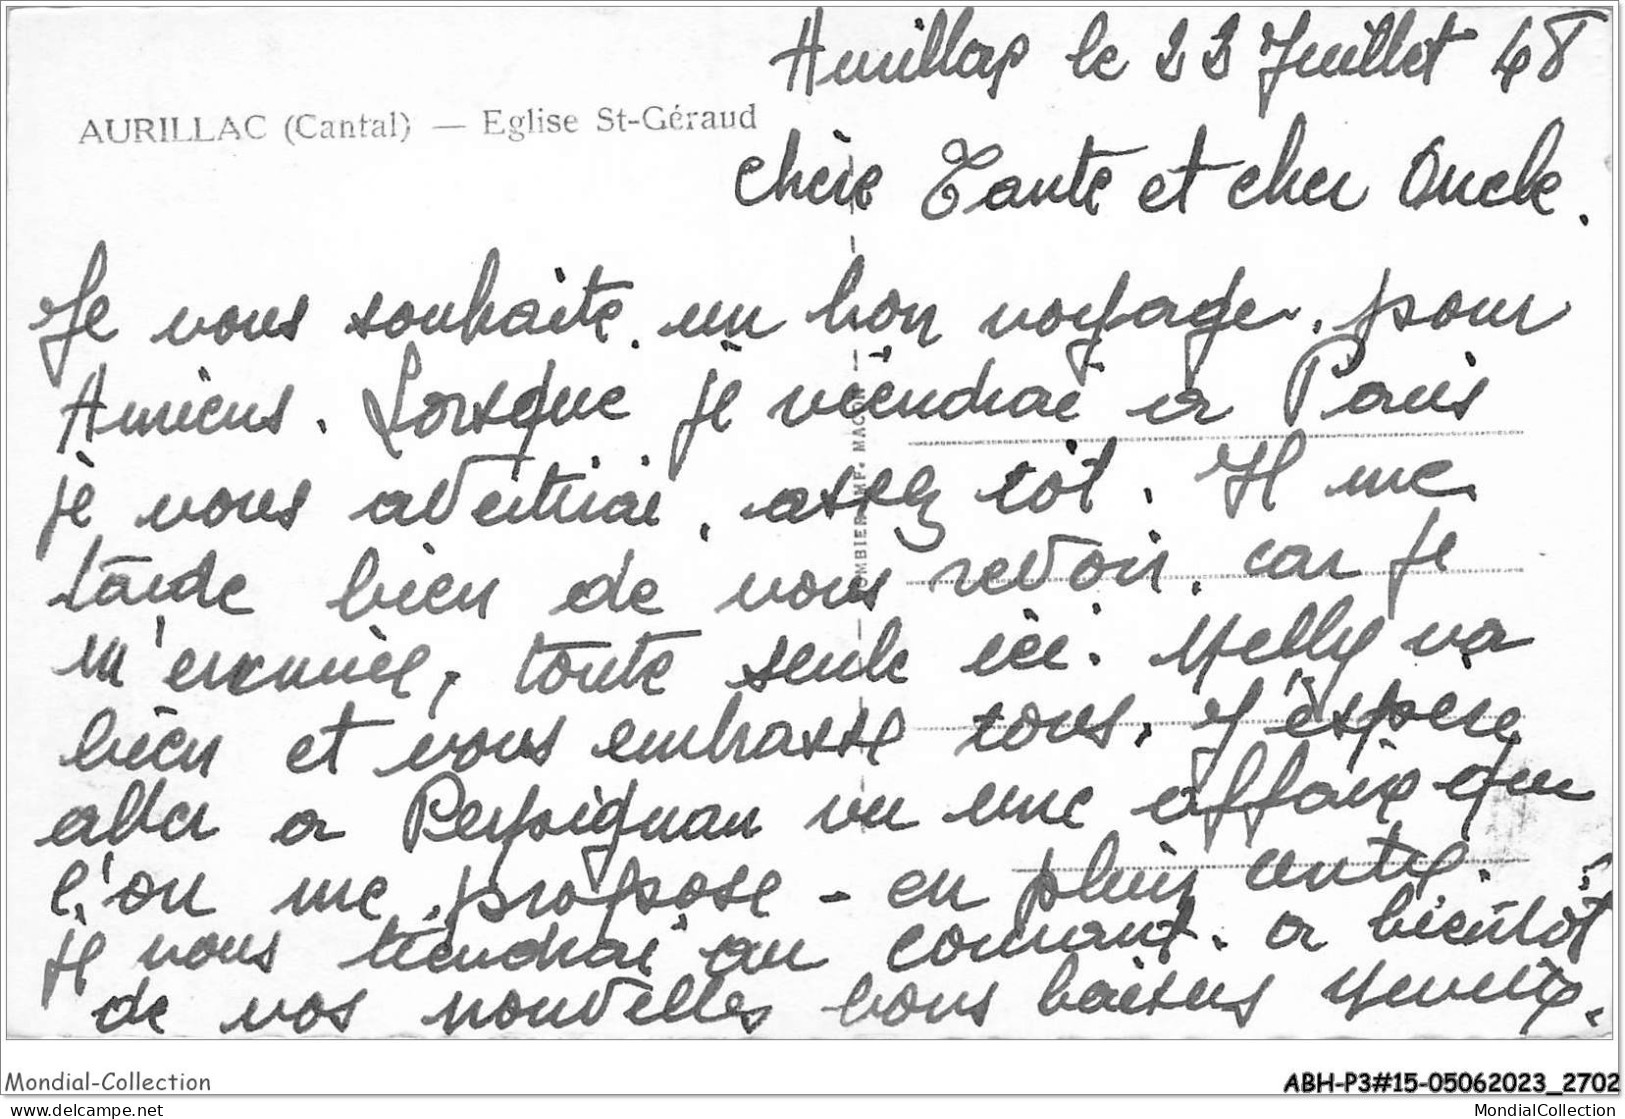 Aurillac le 22 Juillet 48
AURILLAC (Cantal) — Eglise St-Géraud
Chère Tante et cher Oncle.
Je vous souhaite un bon voyage. pour
Amiens. Lorsque je viendrai à Paris
je vous avertirai. assez tôt. Il me
tarde bien de vous revoir. car je
m'ennuie, toute seule ici. Nelly va
bien et vous embrasse tous. J'espère
aller a Perpignan vu une affaire que
l'on me propose - en plein centre.
je vous tiendrai au courant. a bientôt
de vos nouvelles bons baisers
COMBIER IMP. MACON
Mondial-Collection
ABH-P3#15-05062023_2702
https://www.delcampe.net
MondialCollection